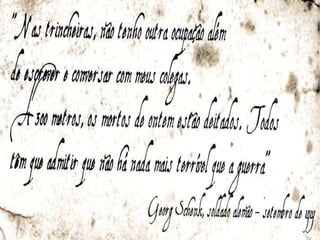 "Nas trincheiras, não tenho outra ocupação além
de escrever e conversar com meus colegas.
A 500 metros, os mortos de ontem estão deitados. Todos
têm que admitir que não há nada mais terrível que a guerra"
Georg Schenk, soldado alemão - setembro de 1914